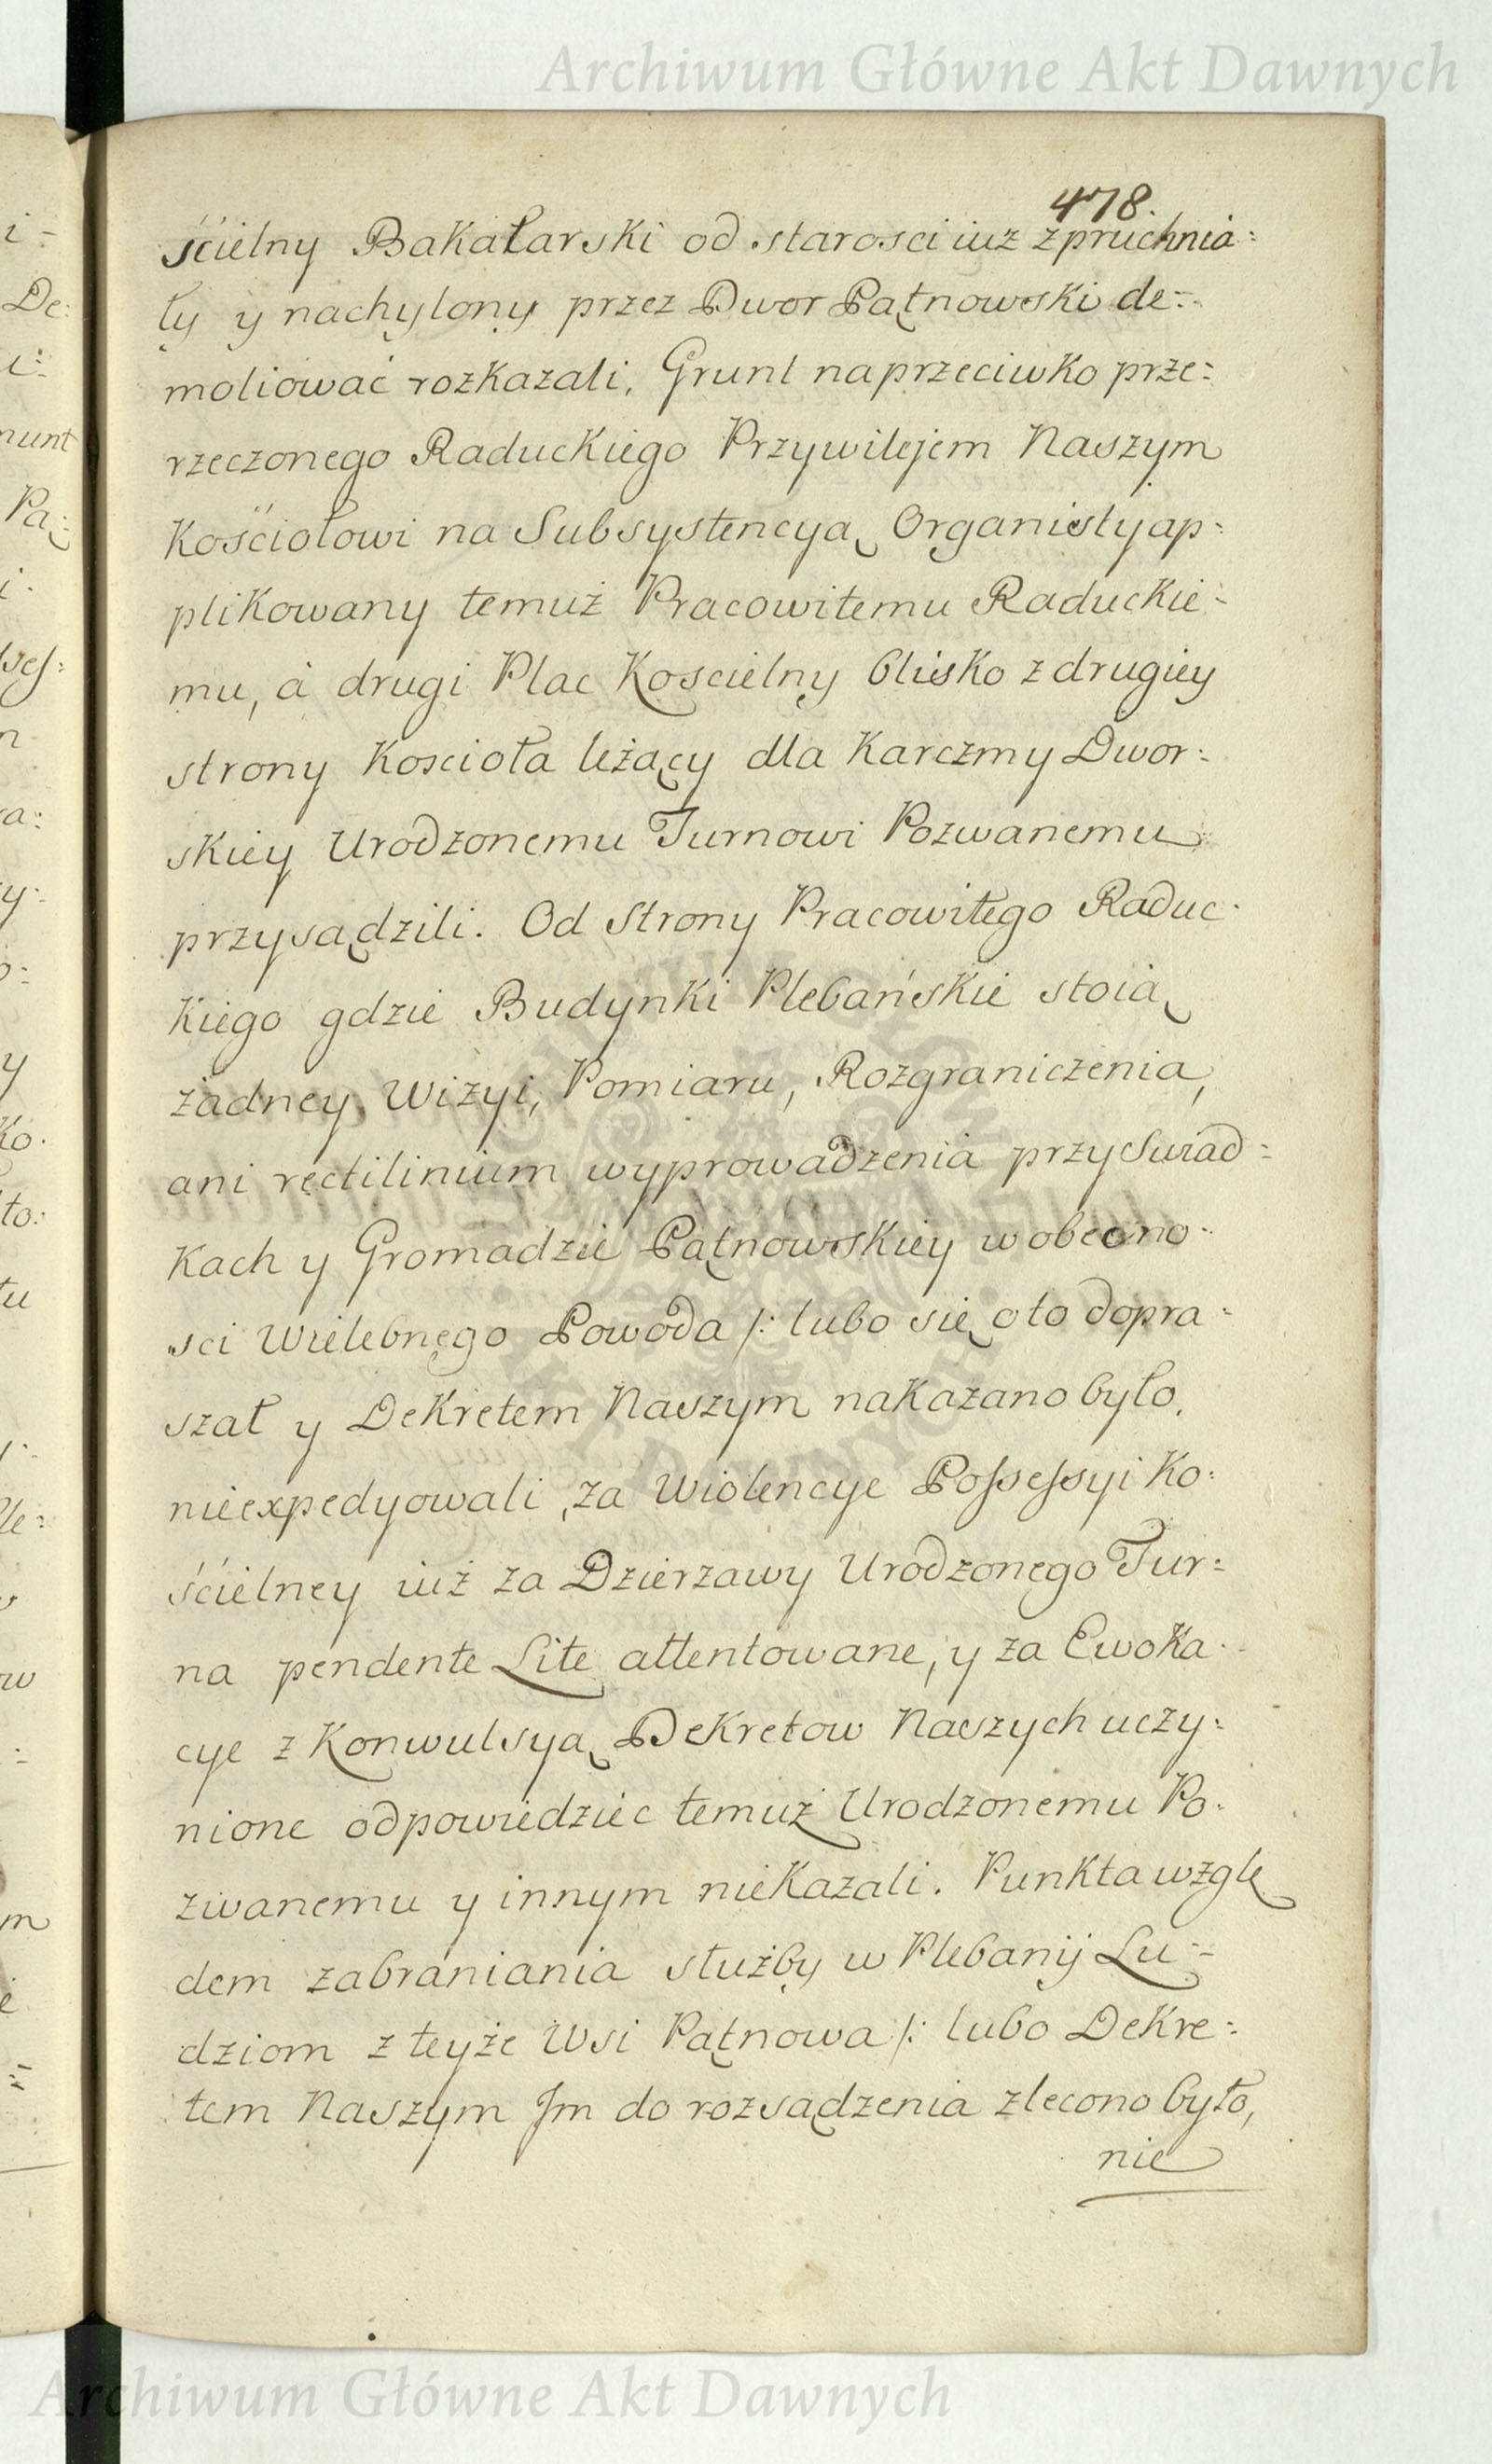 Archiwum Główne Akt Dawnych
478.
ścielny Bakałarski od starosci iuż zpruchnia:
ły y nachylony przez Dwor Pątnowski de:
moliować rozkazali. Grunt naprzeciwko prze:
rzeczonego Raduckiego Przywilejem Naszym
Kościołowi na Subsystencyą Organisty ap:
plikowany temuż Pracowitemu Raduckie:
mu, à drugi Plac Koscielny blisko z drugiey
strony Koscioła leżący dla Karczmy Dwor:
skiey Urodzonemu Turnowi Pozwanemu
przysądzili. Od Strony Pracowitego Raduc:
kiego gdzie Budynki Plebańskie stoią
żadney Wizyi, Pomiaru, Rozgraniczenia,
ani rectilinium wyprowadzenia przy Swiad:
kach y Gromadzie Pątnowskiey w obecno:
sci Wielebnego Powoda /: lubo się oto dopra:
szał y Dekretem Naszym nakazano było,
nieexpedyowali, za Wiolencye Possessyi Ko:
ścielney iuż za Dzierzawy Urodzonego Tur:
na pendente Lite attentowane, y za Ewoka:
cye z Konwulsyą Dekretow Naszych uczy:
nione odpowiedziec temuż Urodzonemu Po:
zwanemu y innym niekazali. Punkta wzglę
dem zabraniania służby w Plebanij Lu:
dziom z teyże Wsi Pątnowa /: lubo Dekre:
tem Naszym Jm do rozsądzenia zlecono było,
nie
Archiwum Główne Akt Dawnych